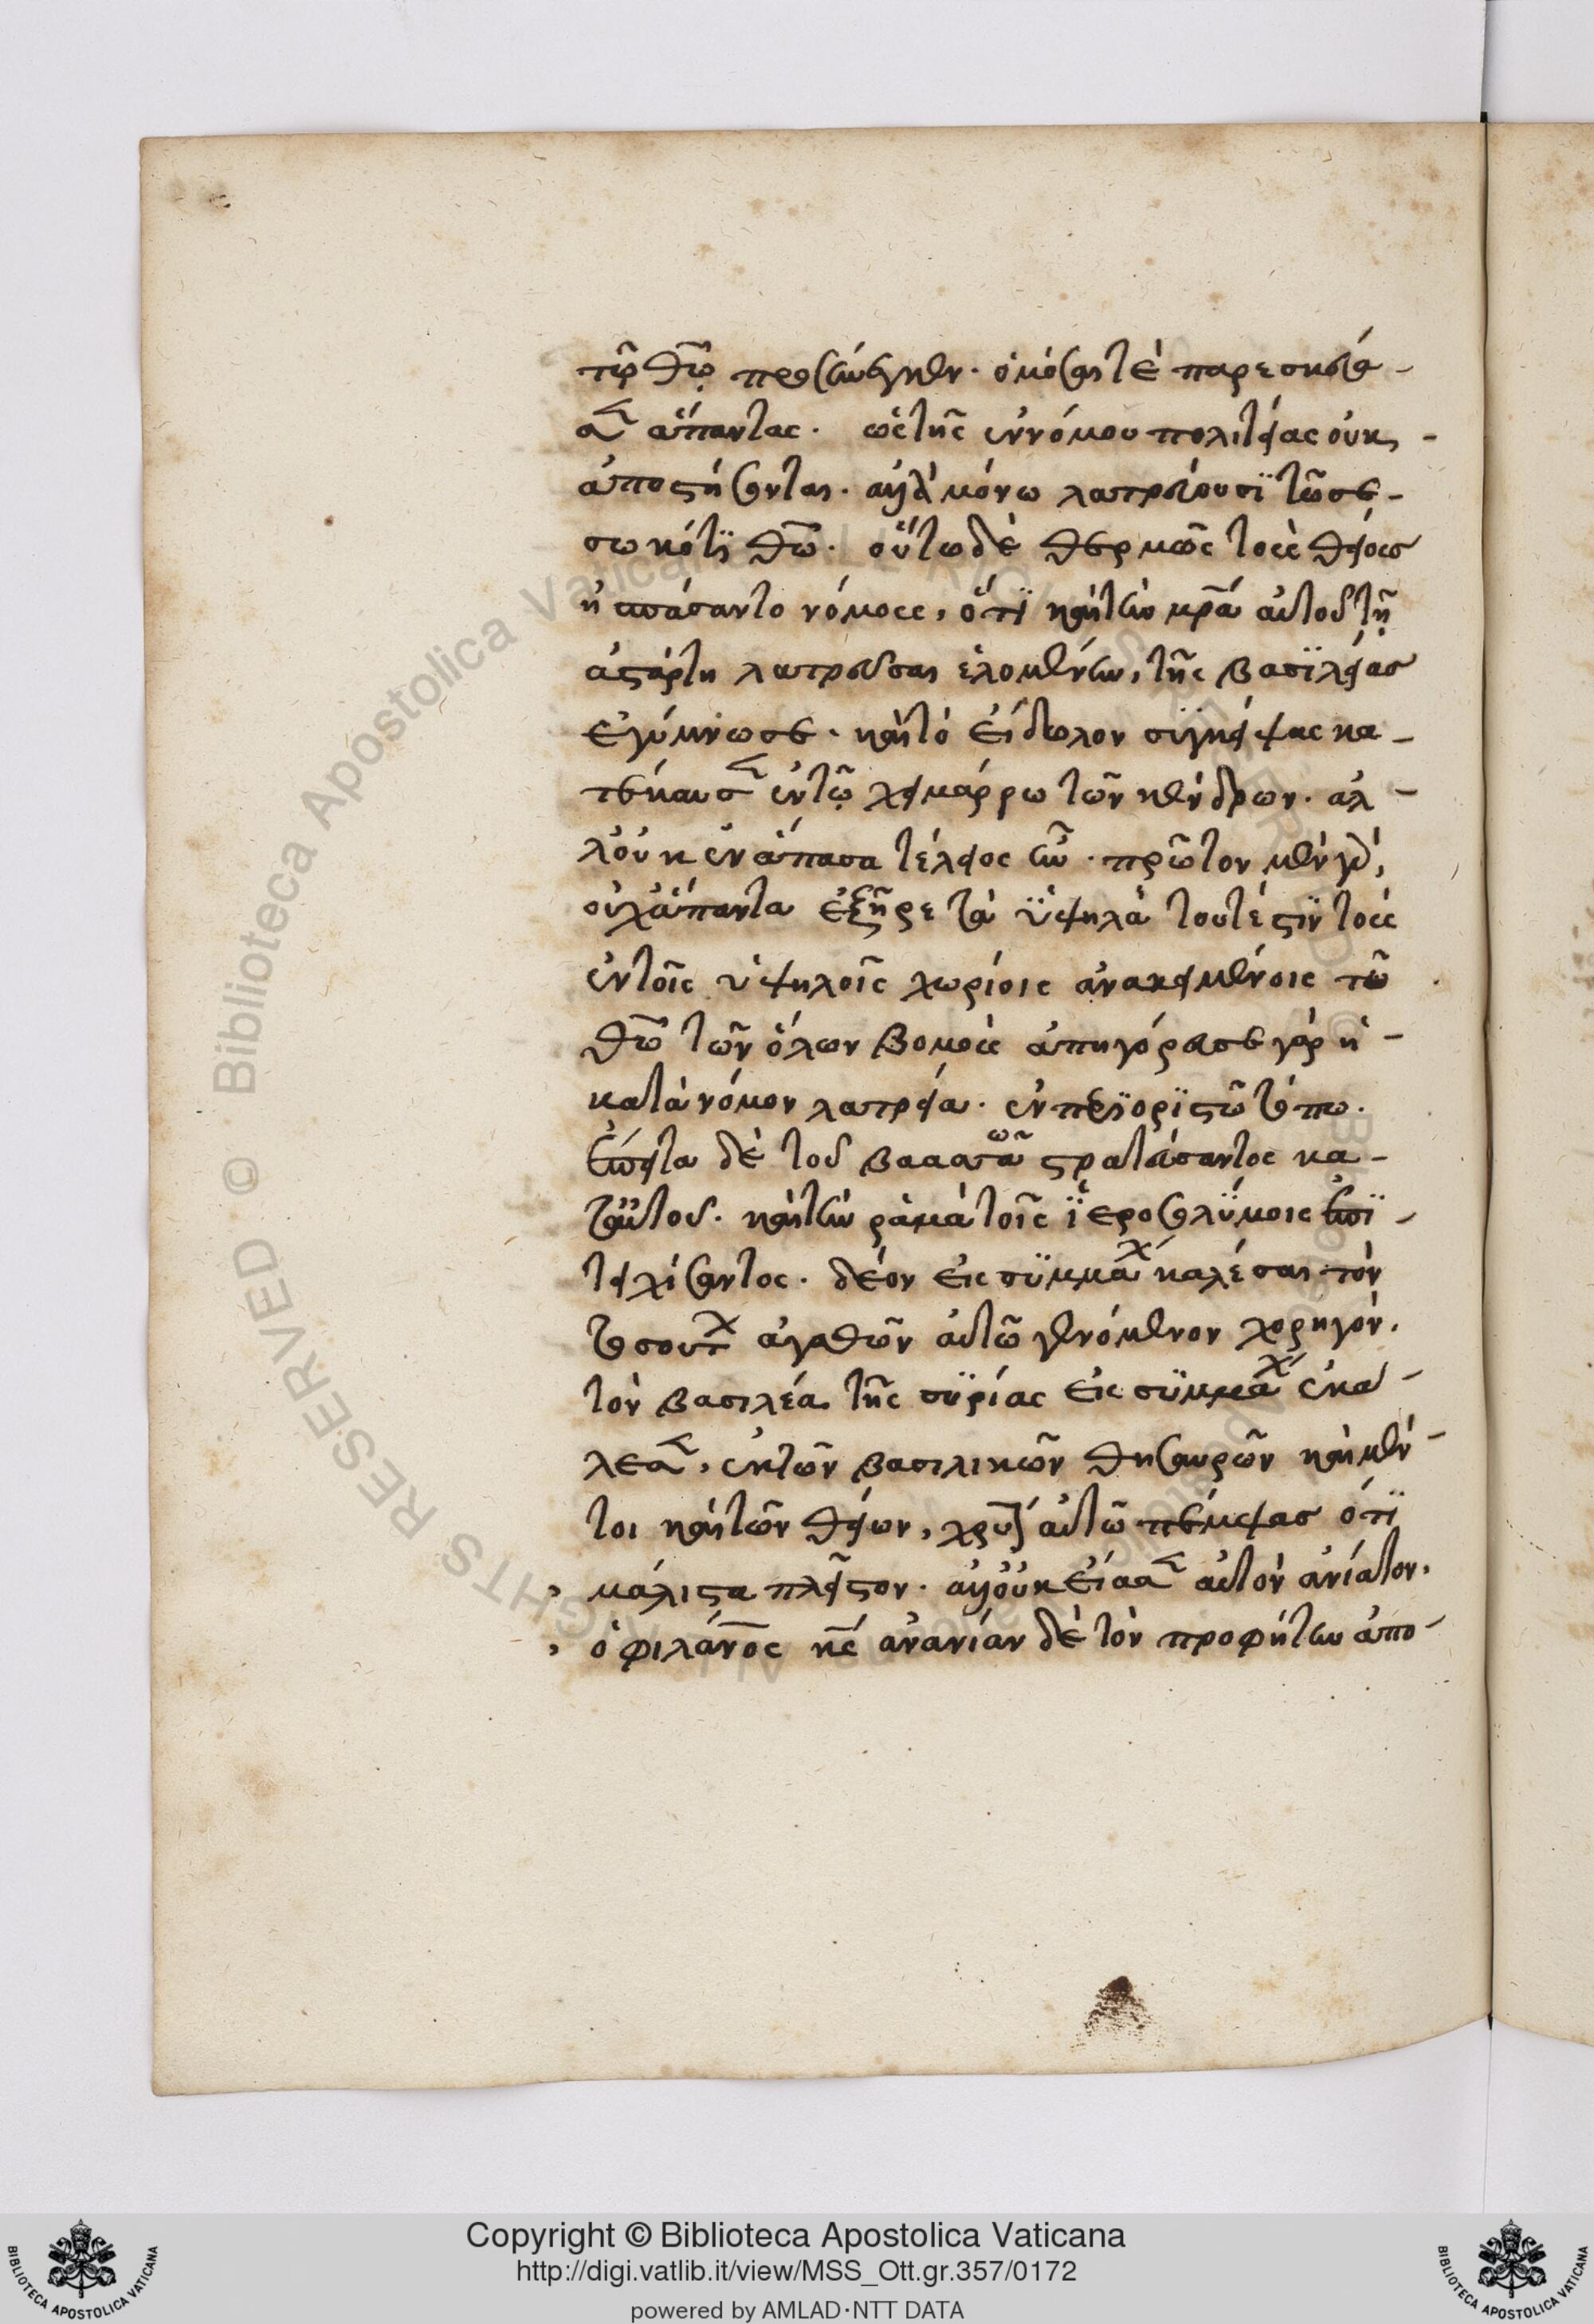 τῷ θῶ προσήνεγκεν· ὀμόσαι τὲ παρεσκεύα-
σεν ἅπαντας· ὡς τῆς ἐννόμου πολιτείας οὐκ -
ἀποστήσονται· ἀλλὰ μόνω λατρεύουσϊ τῶ σε-
σωκότϊ θῶ· οὕτω δὲ θερμῶς τοὺς θείους
ἠσπάσαντο νόμους, ὅτϊ καὶ τὴν μρᾶ αὐτοῦ τῇ
ἀστάρτη λατρεῦσαι ἑλομένην, τῆς βασϊλείας
ἐγύμνωσε· καὶ τὸ εἴδωλον σϋγκόψας κα-
τέκαυσεν ἐν τῷ χειμάρρω τῶν κένδρων· ἀλ-
λ' οὐκ ἐν ἅπασα τέλειος ἦν· πρῶτον μὲν γὰρ,
οὐχ ἅπαντα ἐξῆρε τὰ ϋψηλὰ τουτέστϊν τοὺς
ἐν τοῖς ὑψηλοῖς χωρίοις ἀνακειμένοις τῶ
θῶ τῶν ὅλων βομοὺς ἀπηγόρευσε γὰρ ἡ -
κατὰ νόμον λατρεία· ἐν περϊορϊστῶ τόπω·
ἔπειτα δὲ τοῦ βαασὰ στρατεύσαντος κα-
τ' αὐτοῦ· καὶ τὴν ραμὰ τοῖς ϊεροσολϋμοις ἐπϊ -
τειχίσαντος· δέον εἰς σϋμμαχ καλέσαι τὸν
τοσουτ ἀγαθῶν αὐτῶ γενόμενον χορηγόν,
τὸν βασιλέα τῆς σϋρίας εἰς σϋμμαχ ἐκα-
λεσεν, ἐκ τῶν βασιλικῶν θησαυρῶν καὶ μέν-
τοι καὶ τῶν θείων, χρυσ αὐτῶ πέμψας ὅτϊ
μάλιστα πλεῖστον· ἀλλ' οὐκ εἴασεν αὐτὸν ἀνίατον,
ὁ φιλάνος κς ἀνανίαν δὲ τὸν προφήτην ἀπο-
Copyright © Biblioteca Apostolica Vaticana
http://digi.vatlib.it/view/MSS_Ott.gr.357/0172
powered by AMLAD·NTT DATA